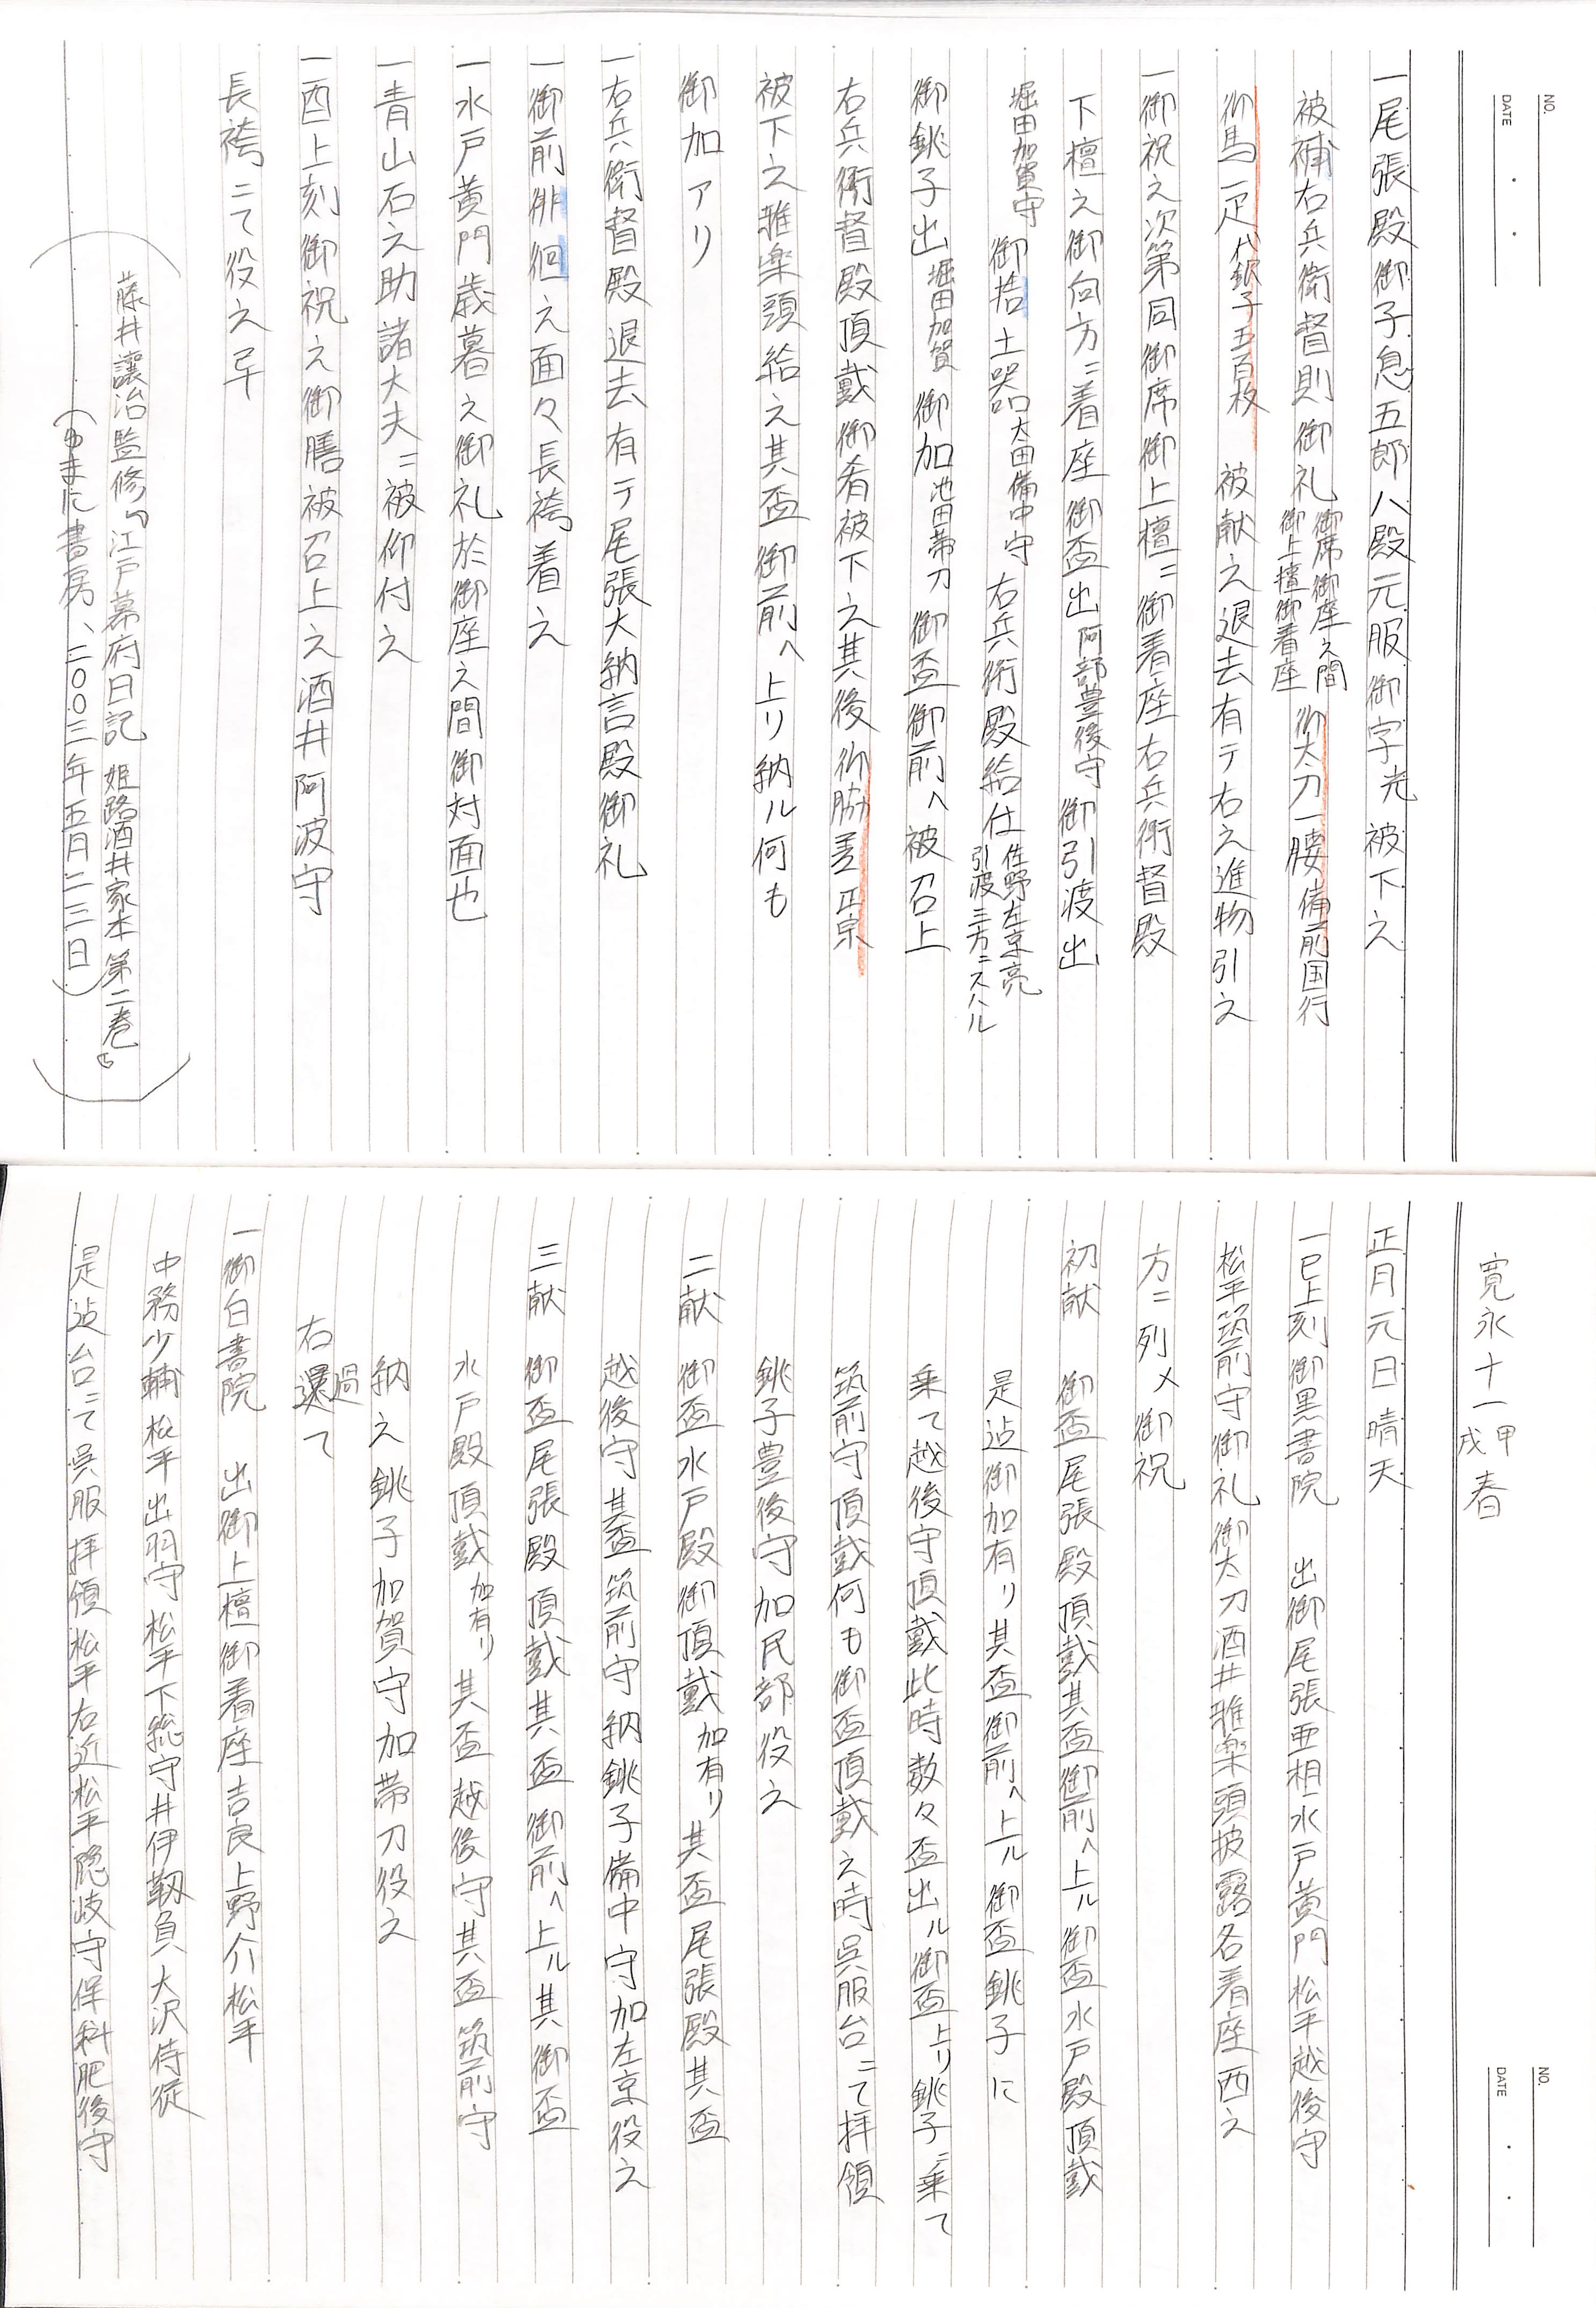 NO.
DATE
一尾張殿御子息五郎八殿元服御字光被下之
被補右兵衛督則御礼 御席御座之間 御上檀御着座 御太刀一腰備前国行
御馬一疋 代銀子五百枚 被献之退去有テ右之進物引之
一御祝之次第同御席御上檀ニ御着座右兵衛督殿
下檀之御向方ニ着座御盃出 阿部豊後守 御引渡出
堀田加賀守 御捨土器 太田備中守 右兵衛殿給仕 佐野左京亮 引渡三方ニスハル
御銚子出 堀田加賀 御加 池田帯刀 御盃御前へ被召上
右兵衛督殿頂戴御肴被下之其後御脇差正宗
被下之雅楽頭給之其盃御前へ上リ納ル何も
御加アリ
一右兵衛督殿退去有テ尾張大納言殿御礼
一御前徘徊之面々長袴着之
一水戸黄門歳暮之御礼於御座之間御対面也
一青山石之助諸大夫ニ被仰付之
一酉上刻御祝之御膳被召上之酒井阿波守
長袴ニて役之畢
(藤井讓治監修『江戸幕府日記 姫路酒井家本 第二巻』
(ゆまに書房、二〇〇三年五月二三日))
NO.
DATE
寛永十一甲戌春
正月元日晴天
一巳上刻御黒書院 出御尾張亜相水戸黄門松平越後守
松平筑前守御礼御太刀酒井雅楽頭披露各着座西之
方ニ列〆御祝
初献 御盃尾張殿頂戴其盃御前へ上ル御盃水戸殿頂戴
是迠御加有リ其盃御前へ上ル御盃銚子に
乗て越後守頂戴此時数々盃出ル御盃上リ銚子ニ乗て
筑前守頂戴何も御盃頂戴之時呉服台ニて拝領
銚子豊後守加民部役之
二献 御盃水戸殿御頂戴 加有リ 其盃尾張殿其盃
越後守其盃筑前守納銚子備中守加左京役之
三献 御盃尾張殿頂戴其盃御前へ上ル其御盃
水戸殿頂戴 加有リ 其盃越後守其盃筑前守
納之銚子加賀守加帯刀役之
右過て
一御白書院 出御上檀御着座吉良上野介松平
中務少輔松平出羽守松平下総守井伊靱負大沢侍従
是迠台ニて呉服拝領松平右近松平隠岐守保科肥後守